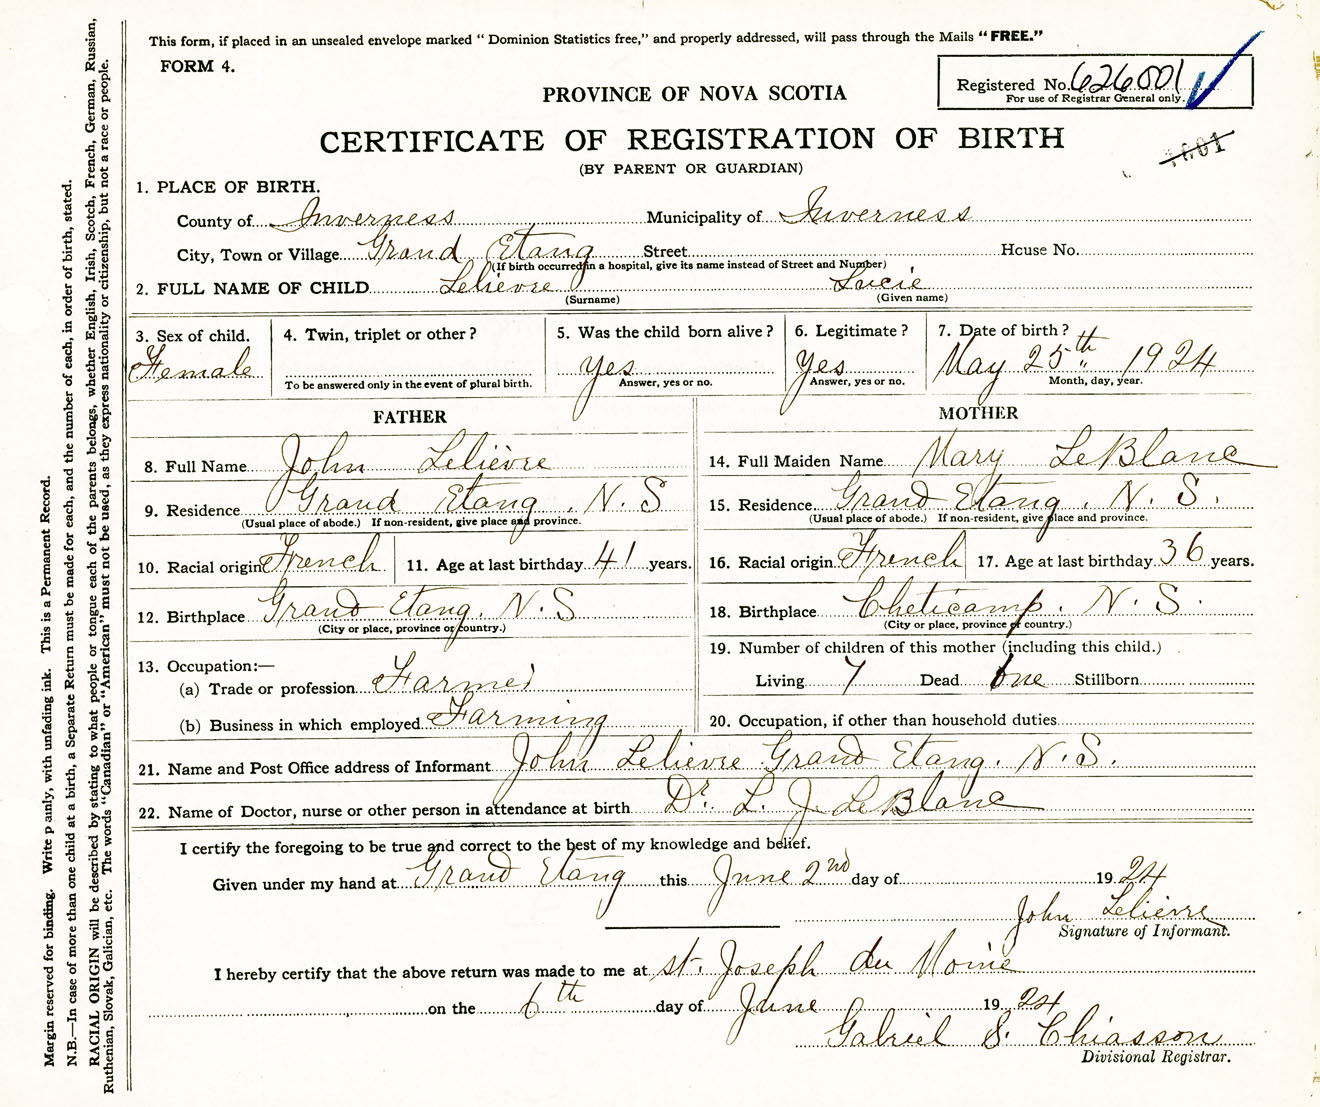 This form, if placed in an unsealed envelope marked "Dominion Statistics free," and properly addressed, will pass through the Mails "FREE."
FORM 4.
Registered No. 626001
For use of Registrar General only.
PROVINCE OF NOVA SCOTIA
CERTIFICATE OF REGISTRATION OF BIRTH
1001
(BY PARENT OR GUARDIAN)
1. PLACE OF BIRTH.
County of Inverness Municipality of Inverness
City, Town or Village Grand Etang Street House No.
(If birth occurred in a hospital, give its name instead of Street and Number)
2. FULL NAME OF CHILD Lelièvre Lucie
(Surname) (Given name)
3. Sex of child. 4. Twin, triplet or other? 5. Was the child born alive? 6. Legitimate? 7. Date of birth?
Female yes yes May 25th 1924
To be answered only in the event of plural birth. Answer, yes or no. Answer, yes or no. Month, day, year.
FATHER
8. Full Name John Lelièvre
9. Residence Grand Etang, N. S
(Usual place of abode.) If non-resident, give place and province.
10. Racial origin French 11. Age at last birthday 41 years.
12. Birthplace Grand Etang. N. S
(City or place, province or country.)
13. Occupation:—
(a) Trade or profession Farmer
(b) Business in which employed Farming
MOTHER
14. Full Maiden Name Mary LeBlanc
15. Residence Grand Etang. N. S.
(Usual place of abode.) If non-resident, give place and province.
16. Racial origin French 17. Age at last birthday 36 years.
18. Birthplace Cheticamp. N. S.
(City or place, province or country.)
19. Number of children of this mother (including this child.)
Living 7 Dead one Stillborn
20. Occupation, if other than household duties
21. Name and Post Office address of Informant John Lelievre Grand Etang. N. S.
22. Name of Doctor, nurse or other person in attendance at birth Dr. L. J. LeBlanc
I certify the foregoing to be true and correct to the best of my knowledge and belief.
Given under my hand at Grand Etang this June 2nd day of 1924
John Lelièvre
Signature of Informant.
I hereby certify that the above return was made to me at St. Joseph du Moine
on the 6th day of June 1924
Gabriel S. Chiasson
Divisional Registrar.
Margin reserved for binding. Write p ainly, with unfading ink. This is a Permanent Record.
N.B.—In case of more than one child at a birth, a Separate Return must be made for each, and the number of each, in order of birth, stated.
RACIAL ORIGIN will be described by stating to what people or tongue each of the parents belongs, whether English, Irish, Scotch, French, German, Russian,
Ruthenian, Slovak, Galician, etc. The words "Canadian" or "American" must not be used, as they express nationality or citizenship, but not a race or people.